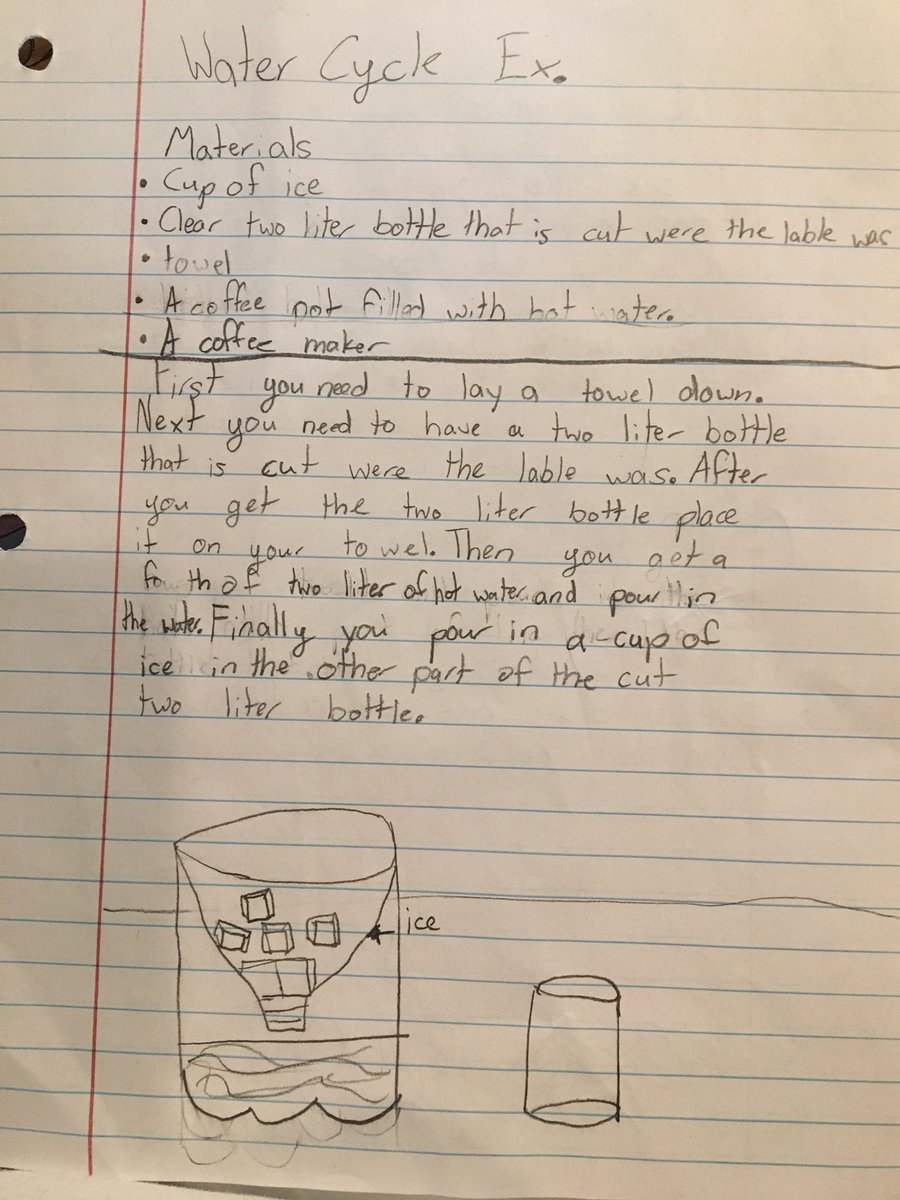 Water Cycle Ex.
Materials
• Cup of ice
• Clear two liter bottle that is cut were the lable was
• towel
• A coffee pot filled with hot water.
• A coffee maker
First you need to lay a towel down.
Next you need to have a two liter bottle
that is cut were the lable was. After
you get the two liter bottle place
it on your towel. Then you get a
fourth of two liter of hot water and pour in
the water. Finally you pour in a cup of
ice in the other part of the cut
two liter bottle.
ice